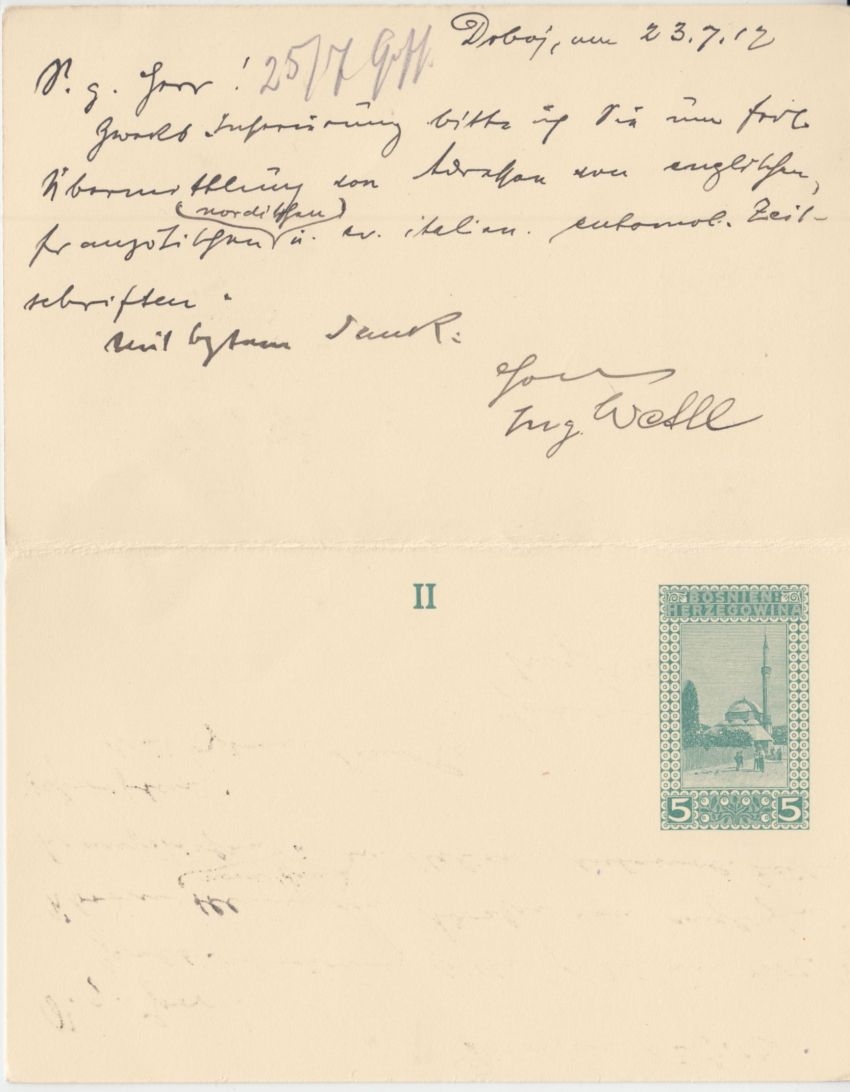 Doboj, am 23.7.12
25/7
S. g. Herr!
Zwecks Inserierung bitte ich Sie um frdl.
Übermittlung von Adressen von englischen,
(nordischen)
französischen u. ev. italien. entomol. Zeit-
schriften.
Mit bestem Dank:
Ing.
II
BOSNIEN-
HERZEGOWINA
5 5